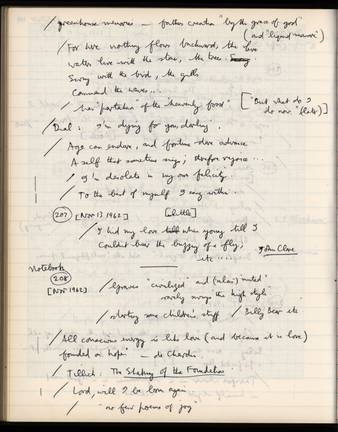 /greenhouse memories — further creation "by the grace of god"
(and "liquid manure")
/For here nothing flows backward, the
live with the star, the tree
Swing with the bird, the gulls
Command the waves...
/ her "partaken" of the "heavenly food" ["But what do I do now (flats)]
/Dial: I'm dying for you, darling.
/ Age can endure, and fortune dare advance
A self that sometimes sings; therefore rejoice...
/ I'm desolate in my own felicity.
/ To the best of myself I sing within.
207 [Nov 13 1962] [Little]
/I hid my love when young till I
Couldn't bear the buzzing of a fly;
etc. John Clare
notebook
208
[Nov 1962]
/Graves "civilized" and
rarely the high style
/ some children's stuff / Billy Bear etc
/All conscious energy is like love (and because it is love)
founded on hope" — de Chardin
/ Tillich: The Shaking of the Foundations
/ Lord, will I be born again
/ "so few poems of joy"